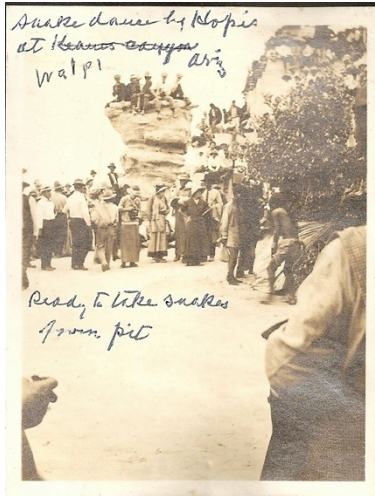 Snake dance by Hopis
at Keams canyon
Walpi Ariz
Ready to take snakes
from pit